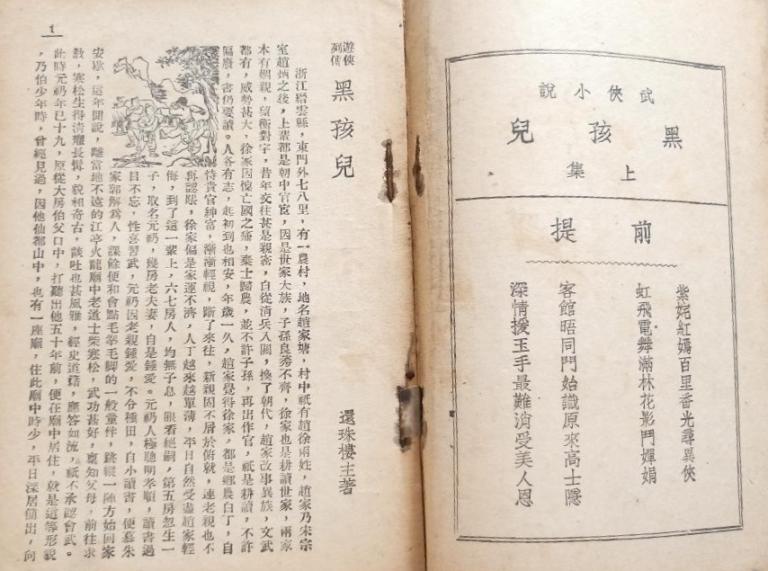 武俠小說
黑孩兒
上集
前提
紫姹紅嫣百里香光尋異俠
虹飛電舞滿林花影鬥嬋娟
客館晤同門始識原來高士隱
深情援玉手最難消受美人恩
遊俠列傳 黑孩兒 還珠樓主著
浙江縉雲縣，東門外七八里，有一農村，地名趙家塘，村中祇有趙徐兩姓，趙家乃宋宗
室趙炳之後，上輩都是朝中官宦，因是世家大族，子孫良莠不齊，徐家也是耕讀世家，兩家
本有姻親，望衡對宇，昔年交往甚是親密，自從清兵入關，換了朝代，趙家改事異族，文武
都有，威勢甚大，徐家因懷亡國之痛，棄士歸農，並不許子孫，再出作官，祇是耕讀，不許
隔廢，書仍要讀。人各有志，起初到也相安，年歲一久，趙家覺得徐家，都是鄉農白丁，自
恃貴官紳富，漸漸輕視，斷了來往，新親固不屑於俯就，連老親也不
再認賬，徐家偏是家運不濟，人丁越來越單薄，平日自然受盡趙家輕
侮，到了這一輩上，六七房人，均無子息，眼看絕嗣，第五房忽生一
子，取名元礽，幾房老夫妻，自是鍾愛。元礽人極聰明孝順，讀書過
目不忘，性喜習武，元礽因老親鍾愛，不令種田，自小讀書，便慕朱
家郭解為人，課餘便和會點毛拳毛脚的一般童伴，跳縱一陣方始回家
安歇，這年聞說，離當地不遠的江亭火龍廟中老道士柴寒松，武功甚好，稟知父母，前往求
教，寒松生得清癯長髯，貌相奇古，談吐也甚風雅，經史道籍，應答如流，祇不承認會武。
此時元礽年已十九，原從大房伯父口中，打聽出他五十年前，便在廟中居住，就是這等形貌
，乃伯少年時，曾經見過，因他仙都山中，也有一座廟，住此廟中時少，平日深居簡出，向
1